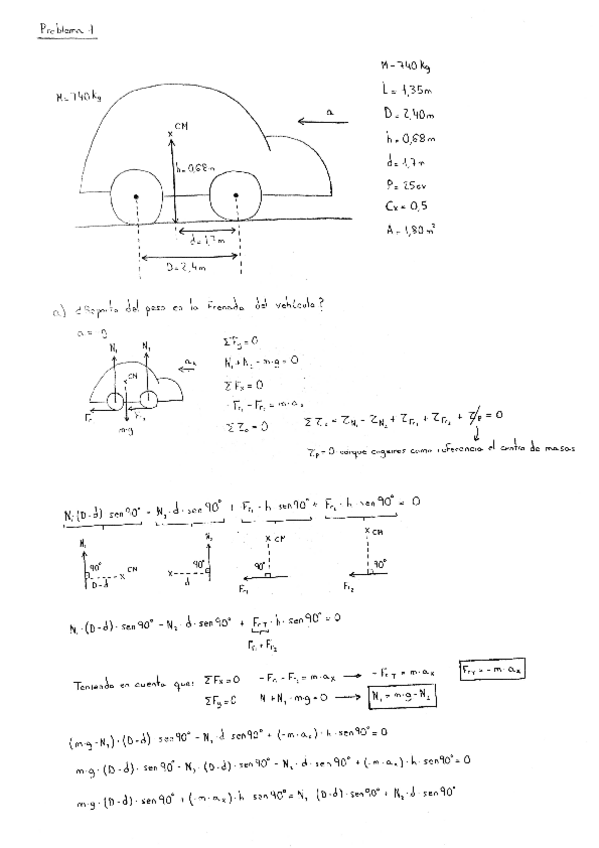 Problema 1
M=740kg
CM
h=0,68m
a
d=1,7m
D=2,4m
M=740kg
L=1,35m
D=2,40m
h=0,68m
d=1,7m
P=25cv
Cx=0,5
A=1,80m²
a) ¿Reparto del peso en la frenada del vehículo?
a= g
N₁ N₂
CM
aₓ
m·g
ΣFy=0
N₁+N₂-m·g=0
ΣFx=0
-Fr₁-Fr₂=m·aₓ
Στ₀=0 Στ₀=τN₁-τN₂+τFr₁+τFr₂+τP=0
τP=0 porque cogemos como referencia el centro de masas
N₁·(D-d)·sen90°-N₂·d·sen90°+Fr₁·h·sen90°+Fr₂·h·sen90°=0
N₁ 90° D-d CM
N₂ 90° d
CM 90° Fr₁
CM 90° Fr₂
N₁·(D-d)·sen90°-N₂·d·sen90°+FrT·h·sen90°=0
Fr₁+Fr₂
Teniendo en cuenta que: ΣFx=0 -Fr₁-Fr₂=m·aₓ → -FrT=m·aₓ FrT=-m·aₓ
ΣFy=0 N₁+N₂-m·g=0 → N₁=m·g-N₂
(m·g-N₂)·(D-d)·sen90°-N₂·d·sen90°+(-m·aₓ)·h·sen90°=0
m·g·(D-d)·sen90°-N₂·(D-d)·sen90°-N₂·d·sen90°+(-m·aₓ)·h·sen90°=0
m·g·(D-d)·sen90°+(-m·aₓ)·h·sen90°=N₂·(D-d)·sen90°+N₂·d·sen90°